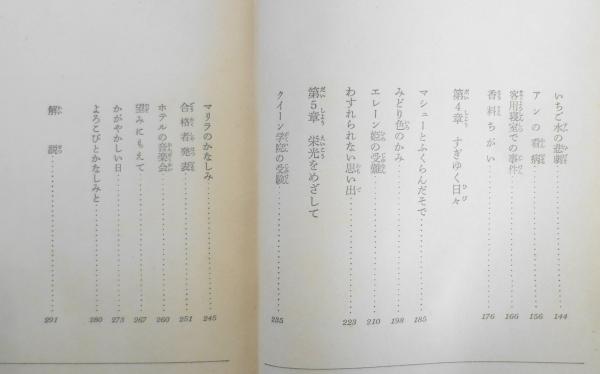 いちご水の悲劇 144
アンの看病 156
客用寝室での事件 166
香料ちがい 176
第4章 すぎゆく日々
マシューとふくらんだそで 185
みどり色のかみ 198
エレーン姫の受難 210
わすれられない思い出 223
第5章 栄光をめざして
クイーン学院の受験 235
マリラのかなしみ 245
合格者発表 251
ホテルの音楽会 260
望みにもえて 267
かがやかしい日 273
よろこびとかなしみと 280
解説 291